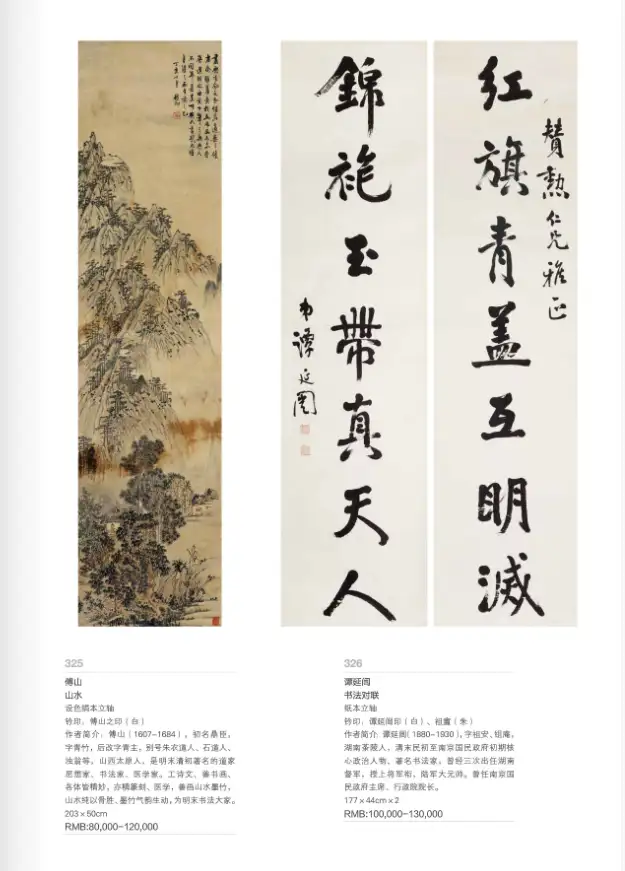 紅旗青盖互明滅
贊勳仁兄雅正
錦袍玉帶真天人
弟譚延闓
325
傅山
山水
设色绢本立轴
钤印：傅山之印（白）
作者简介：傅山（1607-1684），初名鼎臣，
字青竹，后改字青主，别号朱衣道人、石道人、
浊翁等。山西太原人，是明末清初著名的道家
思想家、书法家、医学家。工诗文、善书画、
各体皆精妙，亦精篆刻、医学，善画山水墨竹，
山水纯以骨胜，墨竹气韵生动，为明末书法大家。
203×50cm
RMB:80,000-120,000
326
谭延闿
书法对联
纸本立轴
钤印：谭延闿印（白）、祖盦（朱）
作者简介：谭延闿（1880-1930），字祖安、祖庵，
湖南茶陵人，清末民初至南京国民政府初期核
心政治人物、著名书法家，曾经三次出任湖南
督军，授上将军衔，陆军大元帅。曾任南京国
民政府主席、行政院院长。
177×44cm×2
RMB:100,000-130,000